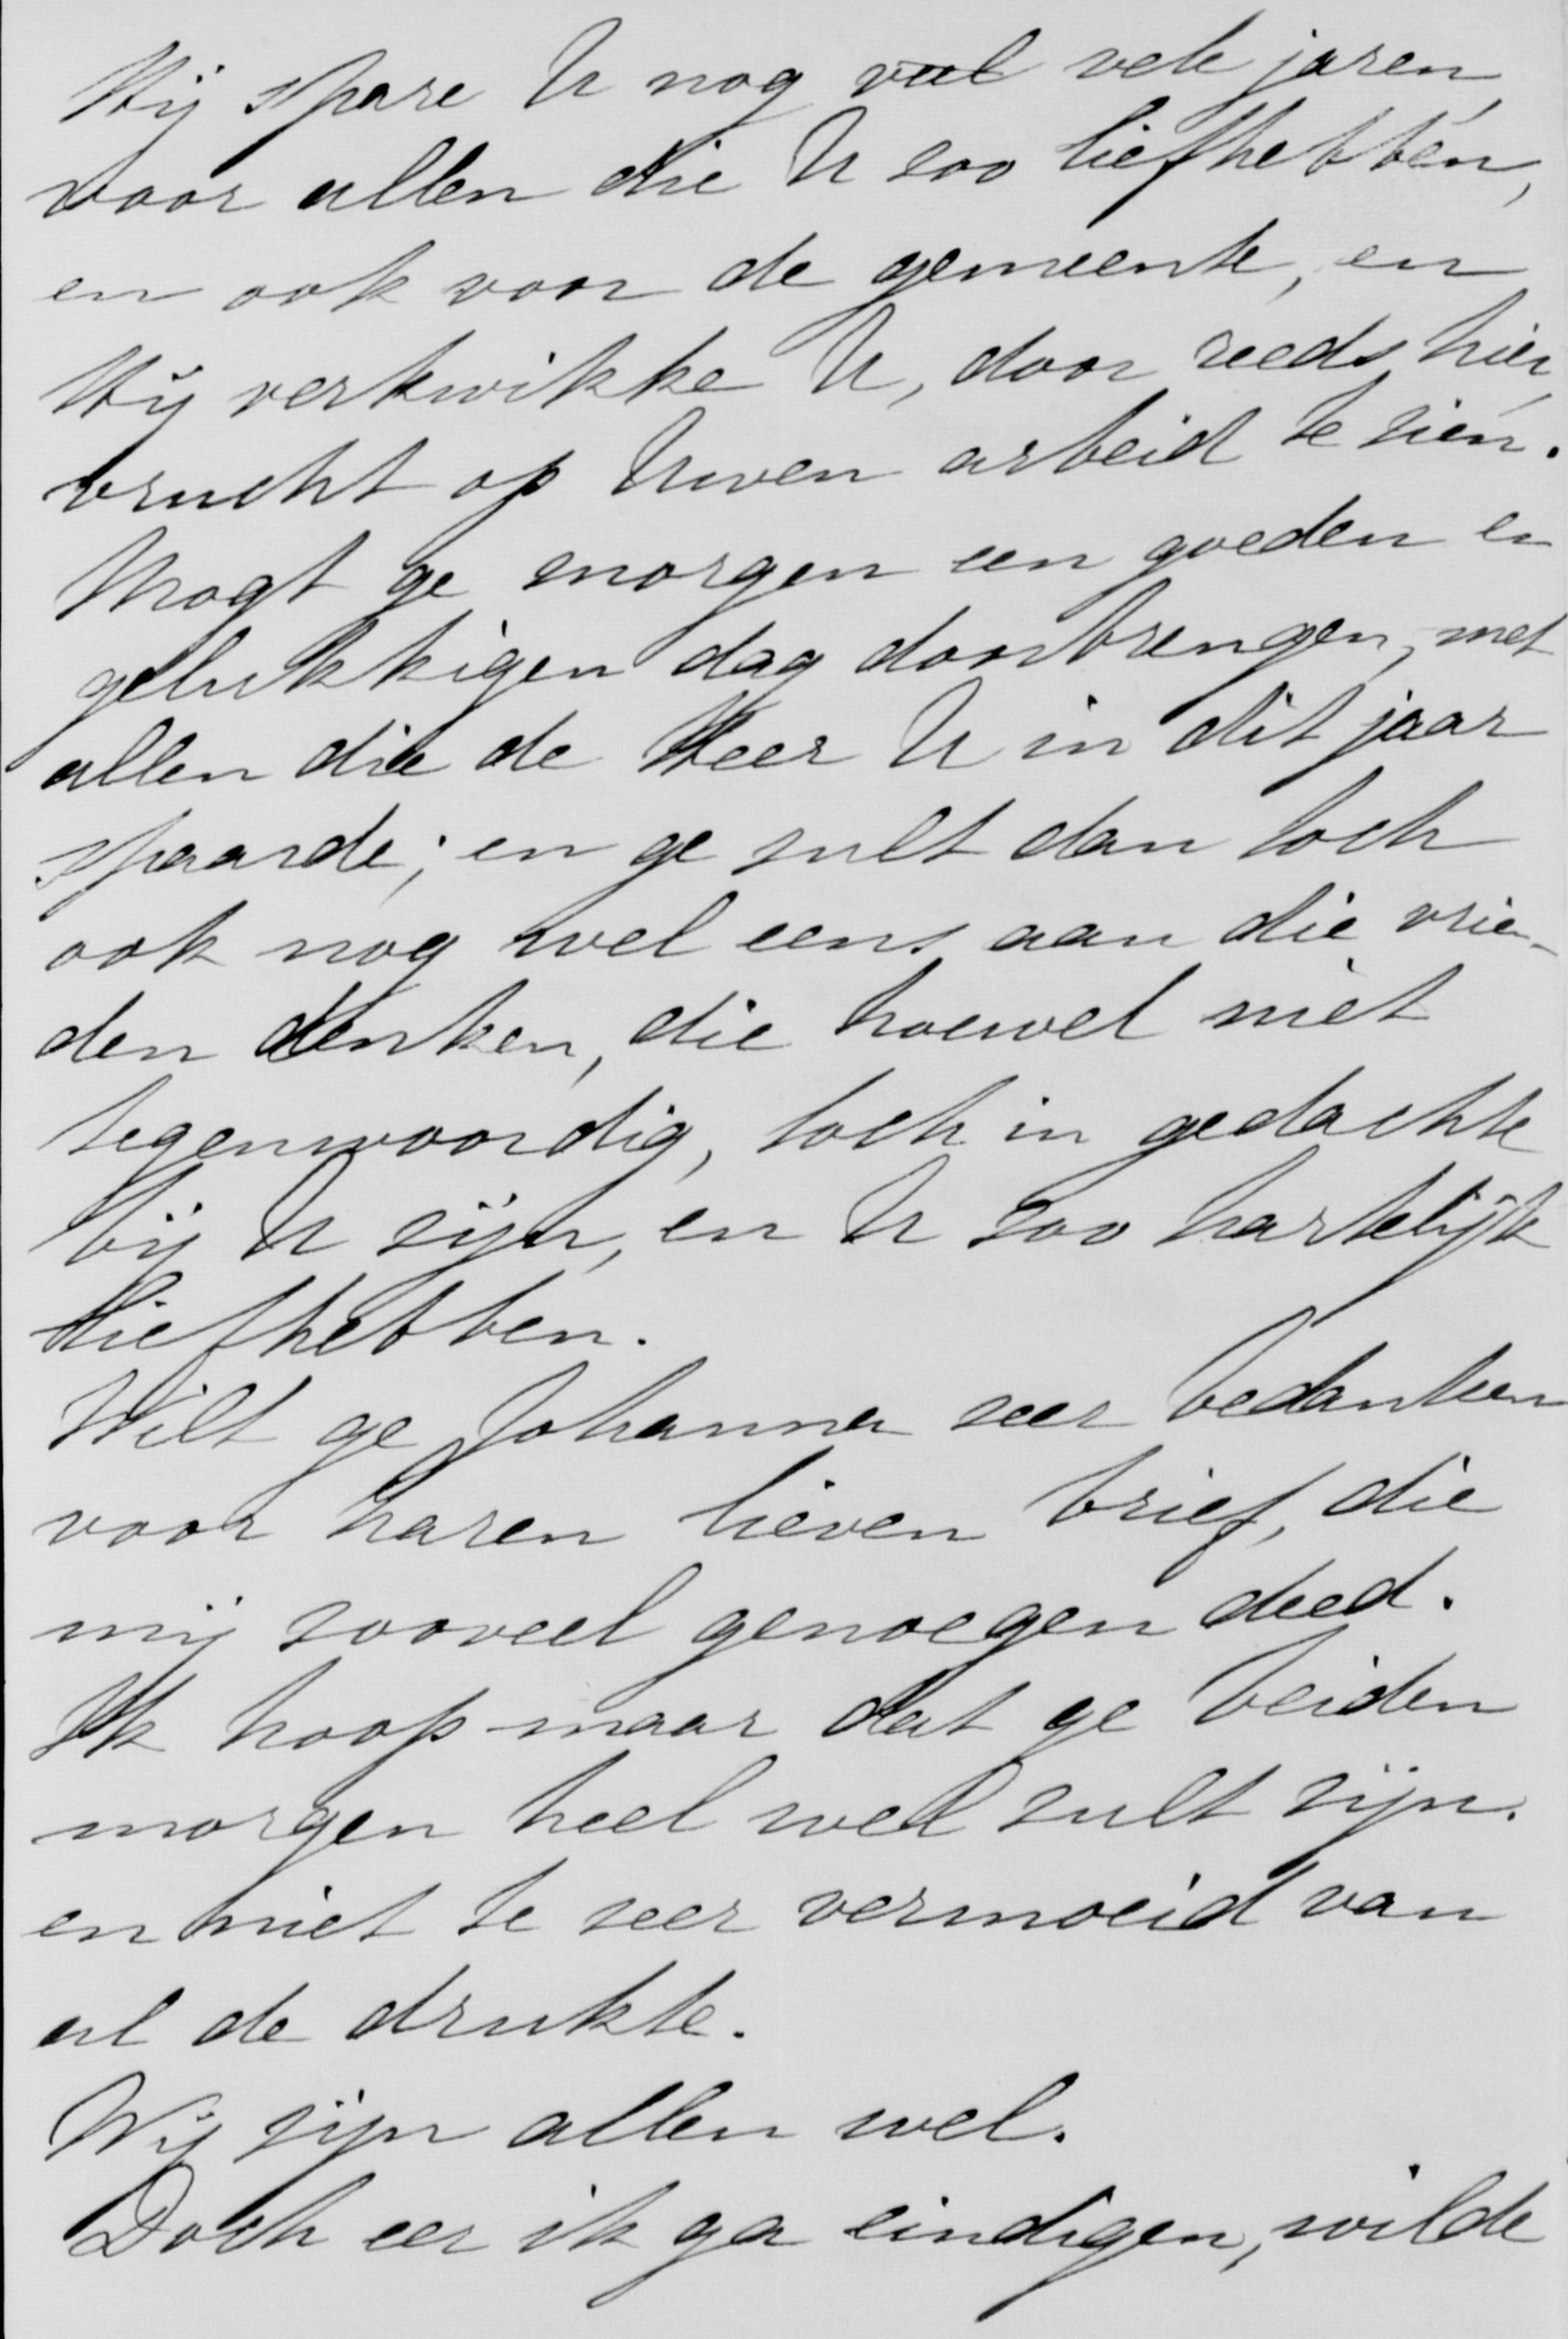 Hij spare U nog veel vele jaren
voor allen die U zoo liefhebben,
en ook voor de gemeente, en
Hij verkwikke U, door reeds hier
vrucht op Uwen arbeid te zien.
Mogt ge morgen een goeden en
gelukkigen dag doorbrengen, met
allen die de Heer U in dit jaar
spaarde; en ge zult dan toch
ook nog wel eens aan die vrien-
den denken, die hoewel niet
tegenwoordig, toch in gedachte
bij U zijn, en U zoo hartelijk
liefhebben.
Wilt ge Johanna zeer bedanken
voor haren lieven brief, die
mij zooveel genoegen deed.
Ik hoop maar dat ge beiden
morgen heel wel zult zijn.
en niet te zeer vermoeid van
al de drukte.
Wij zijn allen wel.
Doch eer ik ga eindigen, wilde